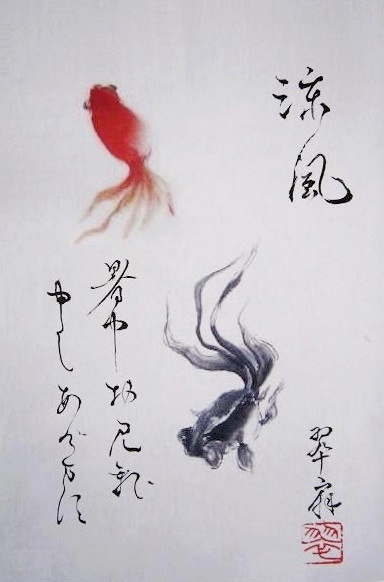 涼風
暑中お見舞
申しあげます
翠